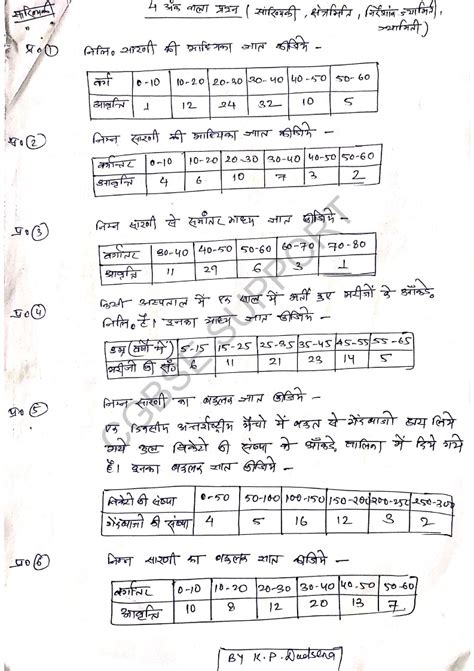 सांख्यिकी
4 अंक वाला प्रश्न (सांख्यिकी, क्षेत्रमिति, निर्देशांक ज्यामिति,
ज्यामिती)
प्र० 1 निलि० सारणी की माध्यिका ज्ञात कीजिये –
वर्ग 0-10 10-20 20-30 30-40 40-50 50-60
आवृत्ति 1 12 24 32 10 5
प्र० 2 निम्न सारणी की माध्यिका ज्ञात कीजिये –
वर्गान्तर 0-10 10-20 20-30 30-40 40-50 50-60
आवृत्ति 4 6 10 7 3 2
प्र० 3 निम्न सारणी से समांतर माध्य ज्ञात कीजिये –
वर्गान्तर 30-40 40-50 50-60 60-70 70-80
आवृत्ति 11 29 6 3 1
प्र० 4 किसी अस्पताल में एक साल में भर्ती हुए मरीजों के आँकड़े
निलि० है। इनका माध्य ज्ञात कीजिये –
उम्र (वर्षो में) 5-15 15-25 25-35 35-45 45-55 55-65
मरीजों की सं० 6 11 21 23 14 5
प्र० 5 निम्न सारणी का बहुलक ज्ञात कीजिये –
एक दिवसीय अंतर्राष्ट्रीय मैचों में बहुत से गेंदबाजों द्वारा लिये
गये कुल विकेटों की संख्या के आँकड़े तालिका में दिये गये
है। इनका बहुलक ज्ञात कीजिये –
विकेटो की संख्या 0-50 50-100 100-150 150-200 200-250 250-300
गेंदबाजो की संख्या 4 5 16 12 3 2
प्र० 6 निम्न सारणी का बहुलक ज्ञात कीजिये –
वर्गान्तर 0-10 10-20 20-30 30-40 40-50 50-60
आवृत्ति 10 8 12 20 13 7
BY K.P. Dadsena
CGBSE SUPPORT